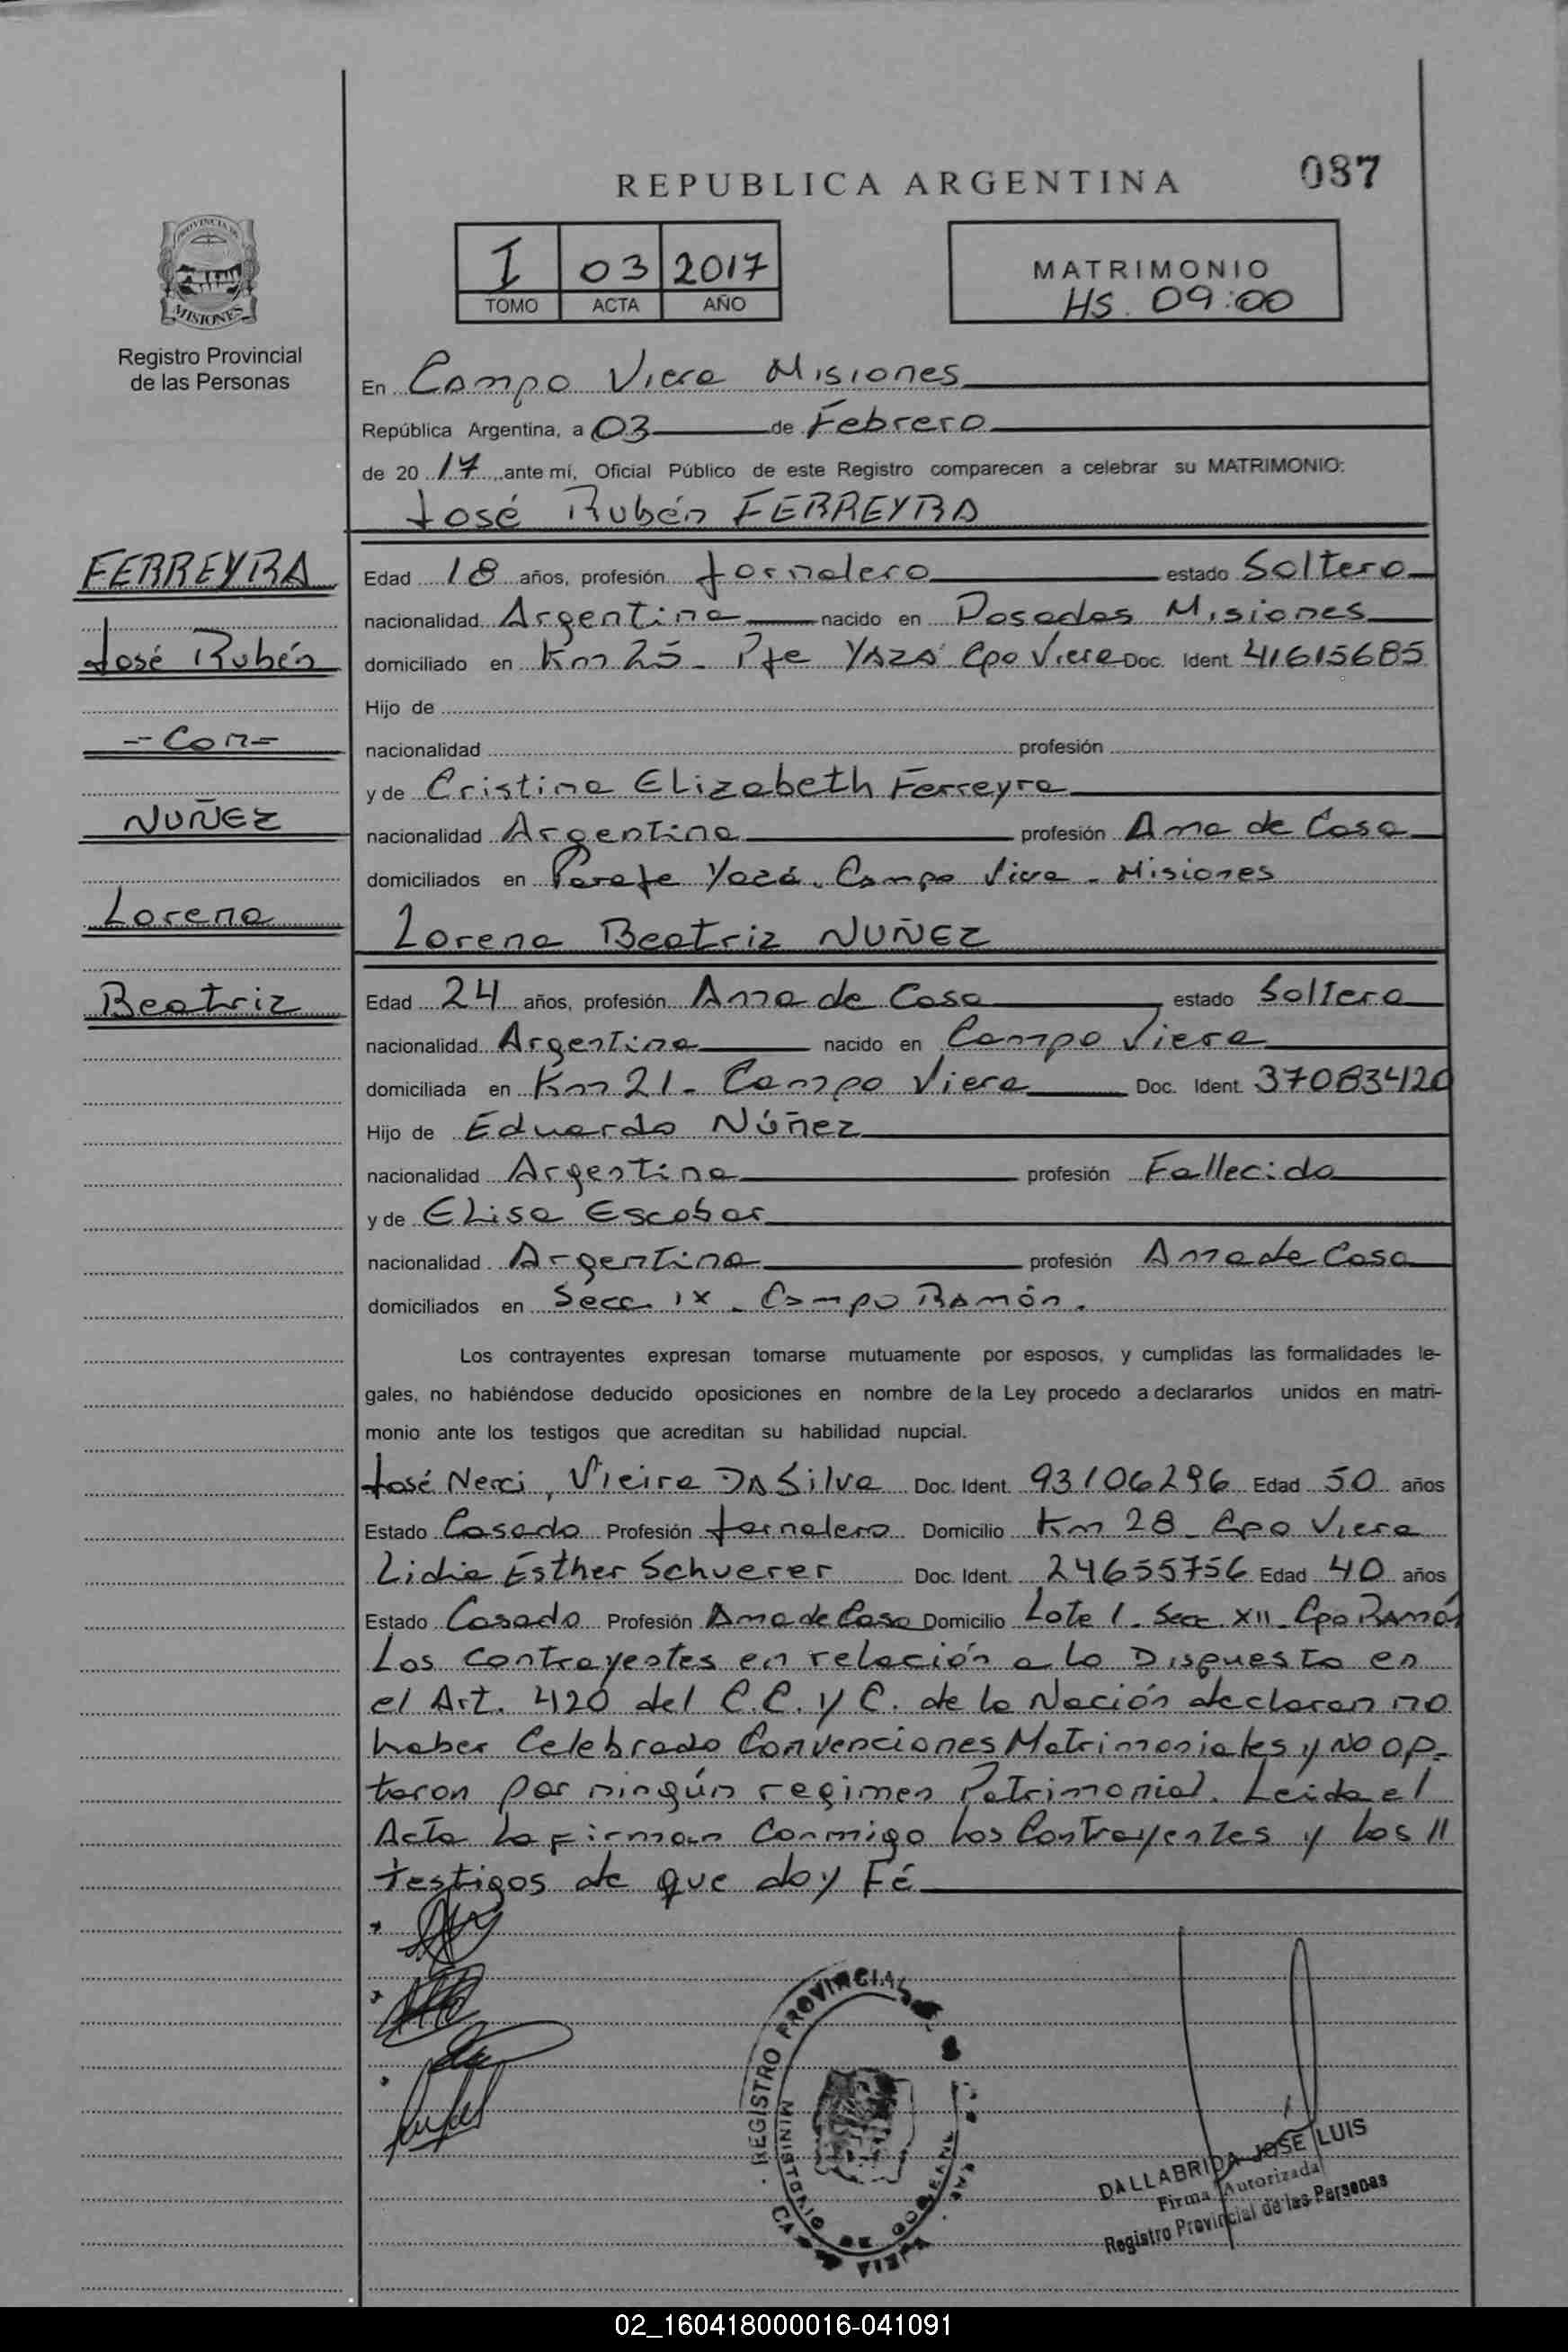 REPUBLICA ARGENTINA
087
PROVINCIA DE
MISIONES
Registro Provincial
de las Personas
I 03 2017
TOMO ACTA AÑO
MATRIMONIO
HS. 09:00
En Campo Viera Misiones
República Argentina, a 03 de Febrero
de 20 17 ante mí, Oficial Público de este Registro comparecen a celebrar su MATRIMONIO:
José Rubén FERREYRA
FERREYRA
José Rubén
-Con-
NUÑEZ
Lorena
Beatriz
Edad 18 años, profesión Jornalero estado Soltero
nacionalidad Argentina nacido en Posadas Misiones
domiciliado en Km 25- Pje YAZA Cpo Viera Doc. Ident. 41615685
Hijo de
nacionalidad profesión
y de Cristina Elizabeth Ferreyra
nacionalidad Argentina profesión Ama de Casa
domiciliados en Paraje Yazá. Campo Viera - Misiones
Lorena Beatriz NUÑEZ
Edad 24 años, profesión Ama de Casa estado Soltera
nacionalidad Argentina nacido en Campo Viera
domiciliada en Km 21- Campo Viera Doc. Ident. 37083420
Hijo de Eduardo Núñez
nacionalidad Argentina profesión Fallecido
y de Elisa Escobar
nacionalidad Argentina profesión Ama de Casa
domiciliados en Secc. IX - Campo Ramón.
Los contrayentes expresan tomarse mutuamente por esposos, y cumplidas las formalidades le-
gales, no habiéndose deducido oposiciones en nombre de la Ley procedo a declararlos unidos en matri-
monio ante los testigos que acreditan su habilidad nupcial.
José Nerci, Vieira DA Silva Doc. Ident. 93106296 Edad 50 años
Estado Casado Profesión Jornalero Domicilio Km 28- Cpo Viera
Lidia Esther Schuerer Doc. Ident. 24655756 Edad 40 años
Estado Casado Profesión Ama de Casa Domicilio Lote 1- Secc. XII- Cpo Ramón
Los contrayentes en relación a lo Dispuesto en
el Art. 420 del C.C. y C. de la Nación declaran no
haber Celebrado Convenciones Matrimoniales y No op-
taron por ningún regimen Patrimonial. Leida el
Acta la firman Conmigo los Contrayentes y los //
testigos de que doy Fé
REGISTRO PROVINCIAL
MINISTERIO DE GOBIERNO
DALLABRIDA JOSE LUIS
Firma Autorizada
Registro Provincial de las Personas
02_160418000016-041091